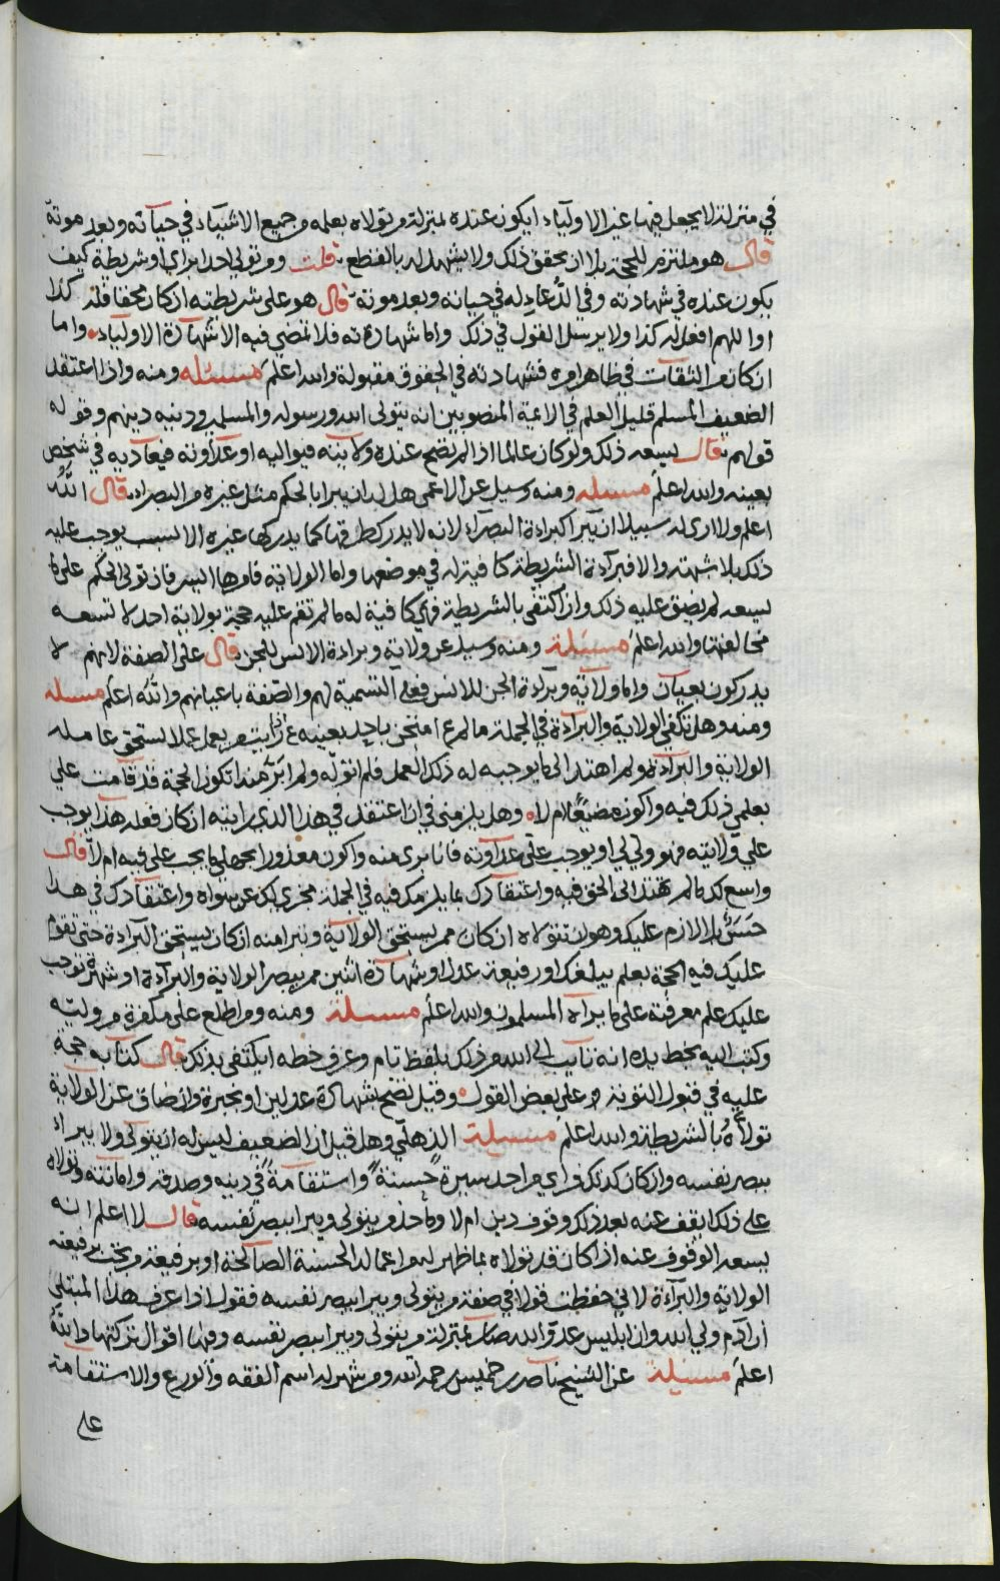 في منزلة لا يجعل فيها غير الاولياء ايكون عنده بمنزلة من تولاه بعلمه من جميع الاشياء في حياته وبعد موته
قال هو ملتزم للحجة بلا ان يحقق ذلك ولا يشهد له بالقطع قلت ومن تولى احدا براي او شريطة كيف
يكون عنده في شهادته وفي الدعاء له في حياته وبعد موته قال هو على شريطته ان كان محقا فله كذا
او اللهم افعل له كذا ولا يرسل القول في ذلك واما شهادته فلا تمضي فيه الا شهادة الاولياء واما
ان كان من الثقات في ظاهر امره فشهادته في الحقوق مقبولة والله اعلم مسئله ومنه واذا اعتقد
الضعيف المسلم قليل العلم في الائمة المنصوبين انه يتولى الله ورسوله والمسلمين ودينه دينهم وقوله
قولهم قال يسعه ذلك ولو كان عالما اذا لم تصح عنده ولايته فيواليه او عداوته فيعاديه في شخص
بعينه والله اعلم مسئله ومنه وسيل عن الاعمى هل له ان يبرا بالحكم مثل غيره من البصراء قال الله
اعلم ولا ارى له سبيلا ان يبرا كبراءة البصراء لانه لا يدرك طرقها كما يدركها غيره الا لسبب يوجب عليه
ذلك بلا شبهة والا فبراءة الشريطة كافية له في موضعها واما الولاية فامرها ايسر فان تولى بالحكم على ما
يسعه لم يضق عليه ذلك وان اكتفى بالشريطة فهي كافية له ما لم تقم عليه حجة بولاية احد لا تسعه
مخالفتها والله اعلم مسيلة ومنه وسيل عن ولاية وبراءة الانس للجن قال على الصفة لانهم لا
يدركون بعيان واما ولاية وبراءة الجن للانس فعلى التسمية لهم والصفة باعيانهم والله اعلم مسله
ومنه وهل تكفي الولاية والبراءة في الجملة ما لم امتحن باحد بعينه اذا رايته يعمل عملا يستحق عامله
الولاية والبراءة ولم اهتد الى ما يوجبه له ذلك العمل فلم اتوله ولم ابرا منه اتكون الحجة قد قامت علي
بعلمي ذلك فيه واكون مضيعا ام لا وهل يلزمني في ان اعتقد في هذا الذي رايته ان كان فعله هذا يوجب
علي ولايته فهو ولي لي او يوجب علي عداوته فانا بري منه واكون معذورا بجهلي ما يجب علي فيه ام لا قال
واسع لك ما لم تهتد الى الحق فيه واعتقادك بما يلزمك فيه في الجملة مجزي لك عن سواه واعتقادك في هذا
حسن بل لازم عليك وهو ان تتولاه ان كان ممن يستحق الولاية وتبرا منه ان كان يستحق البراءة حتى تقوم
عليك فيه الحجة بعلم يبلغك او رفيعة عدل او شهادة اثنين ممن يبصر الولاية والبراءة او شهرة توجب
عليك علم معرفته على ما يراه المسلمون والله اعلم مسئلة ومنه ومن اطلع على مكفرة من وليه
وكتب اليه بخط يده انه تايب الى الله من ذلك بلفظ تام وعرف خطه ايكتفى بذلك قال كتابه حجة
عليه في قبول التوبة وعلى بعض القول وقيل تصح بشهادة عدلين او بخبرة وان ضاق عن الولاية
تولاه بالشريطة والله اعلم مسيلة الذهلي وهل قيل ان الضعيف ليس له ان يتولى ولا يبراء
ببصر نفسه وان كان كذلك وراى من احد سيرة حسنة واستقامة في دينه وصدقه وامانته وتولاه
على ذلك ايقف عنه بعد ذلك وقوف دين ام لا وما حد من يتولى ويبرا ببصر نفسه قال لا اعلم انه
يسعه الوقوف عنه اذا كان قد تولاه بما ظهر له من اعماله الحسنة الصالحة او برفيعة من تجب برفيعته
الولاية والبراءة لاني حفظت قولا في صفة من يتولى ويبرا ببصر نفسه فقول اذا عرف هذا المبتلى
ان آدم ولي الله وان ابليس عدو الله صار بمنزلة من يتولى ويبرا ببصر نفسه وفيها اقوال تركتها والله
اعلم مسيلة عن الشيخ ناصر بن خميس رحمه الله ومن شهر له اسم الفقه والورع والاستقامة
على